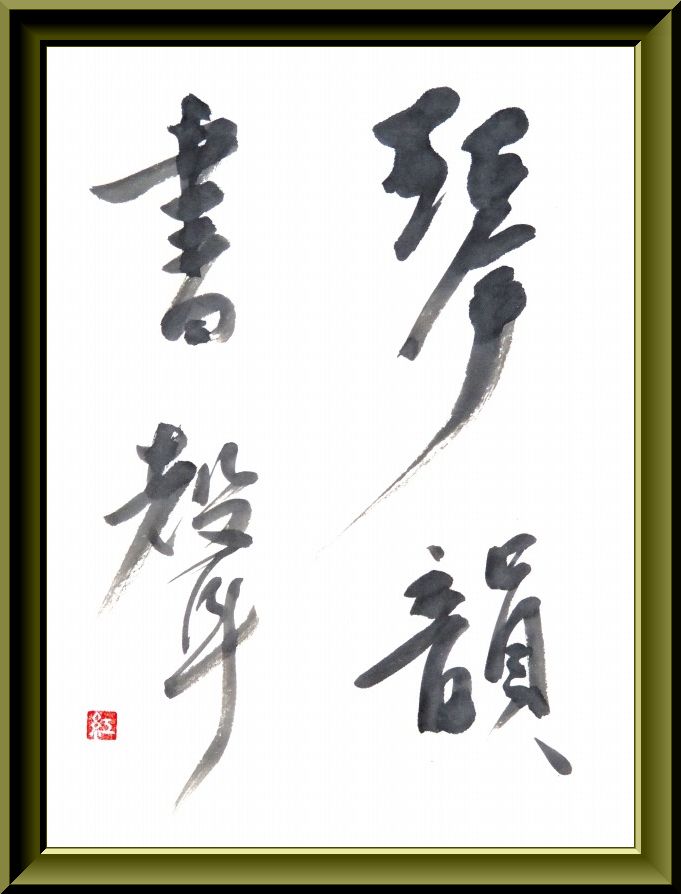 琴韻
書聲
紅